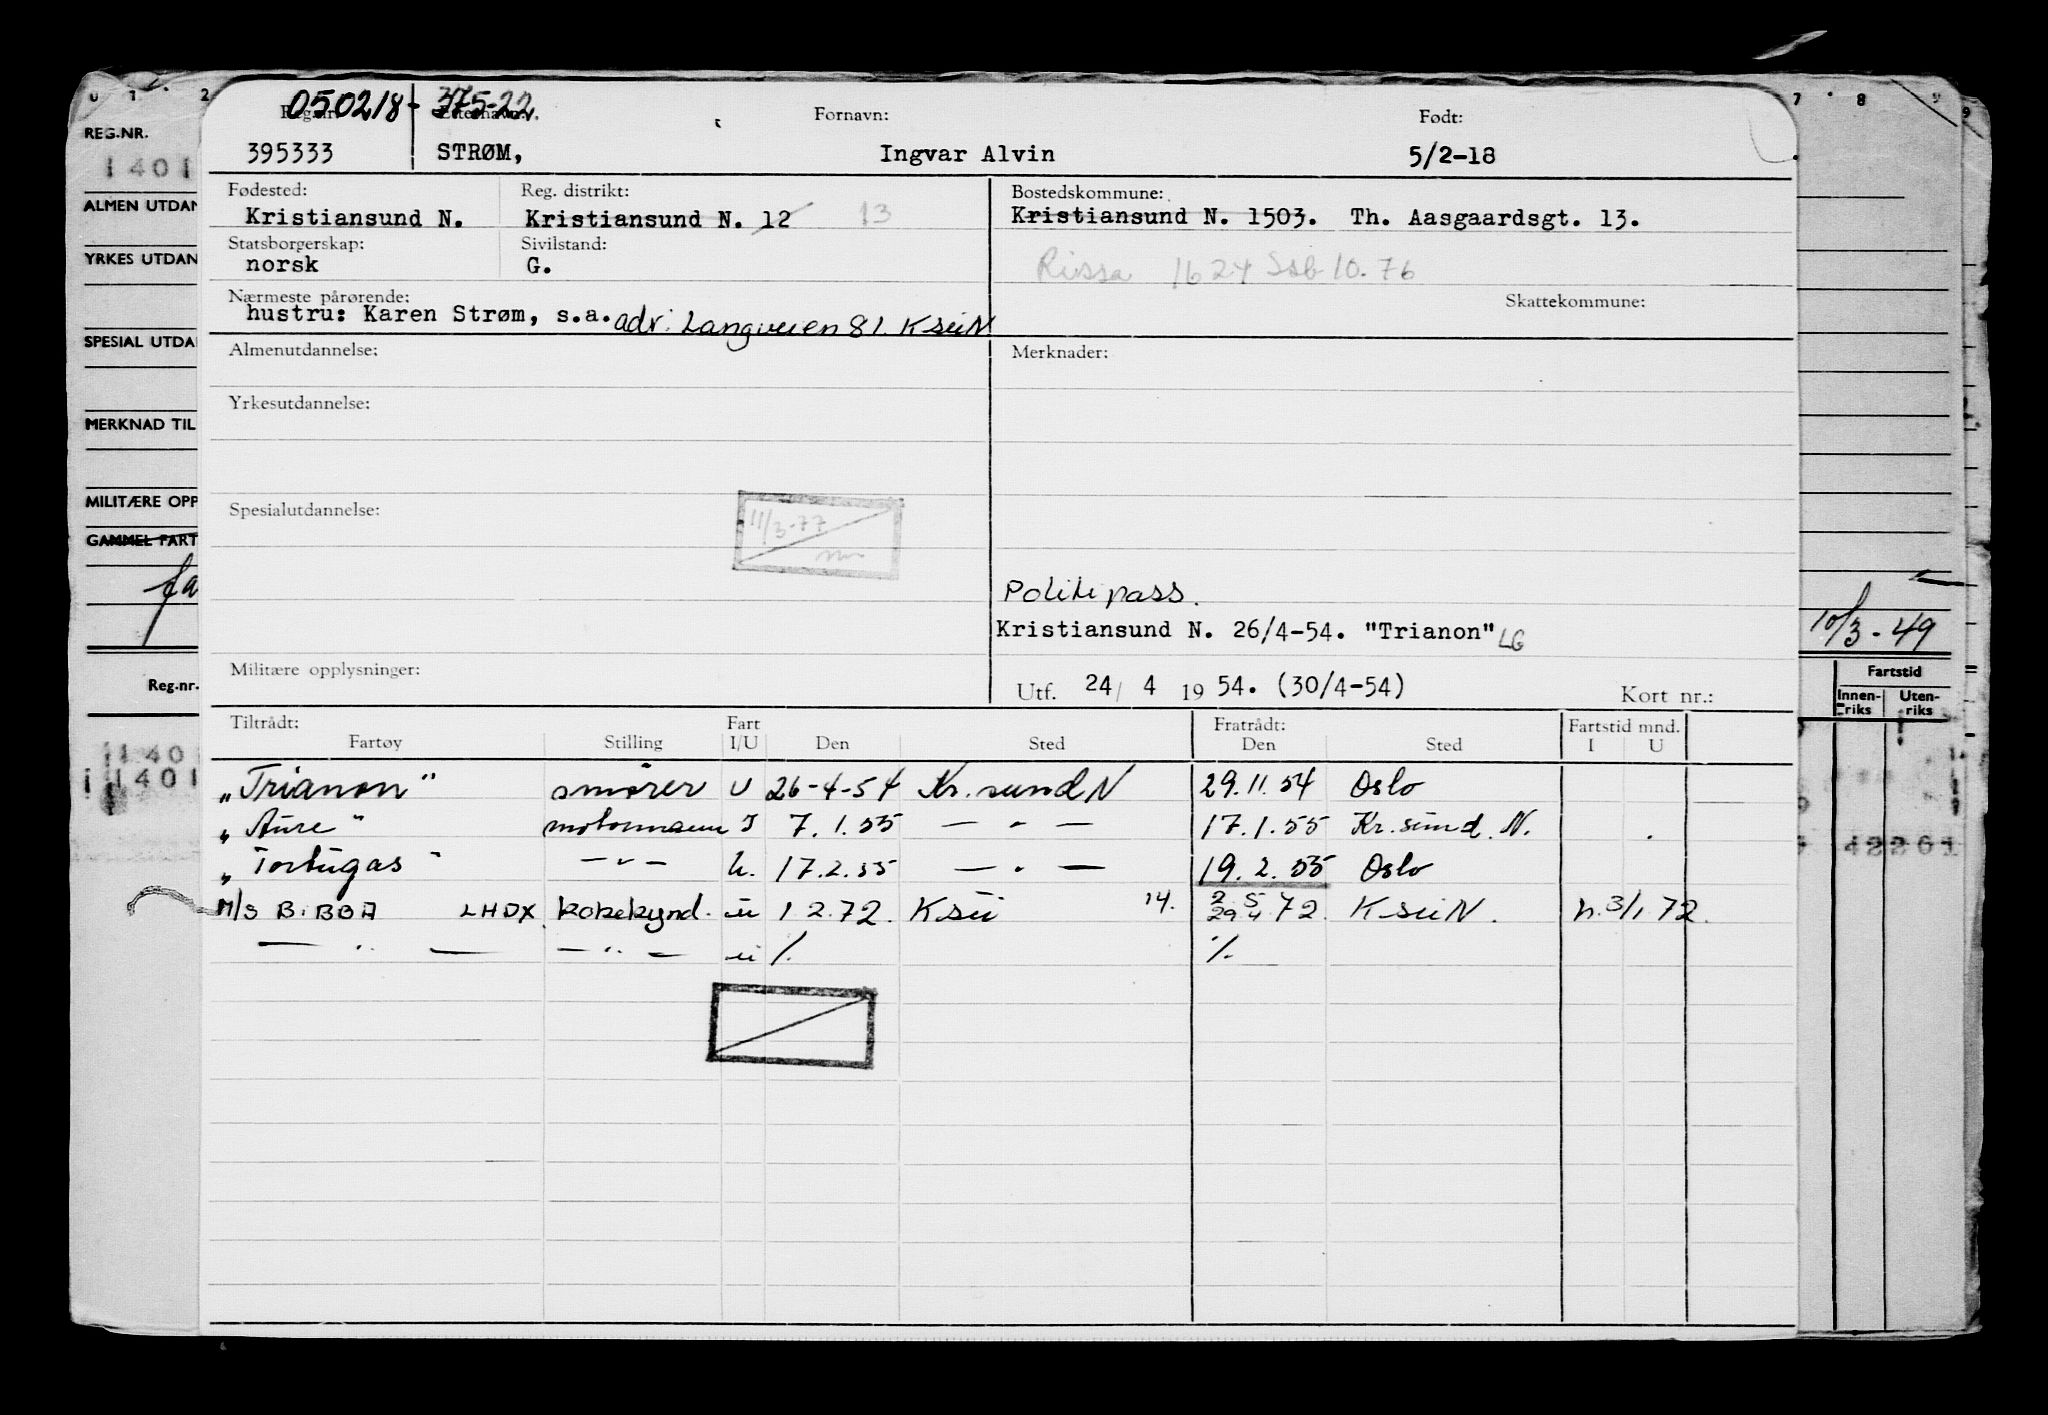 050218-37522
Reg.nr. Etternavn: Fornavn: Født:
395333 STRØM, Ingvar Alvin 5/2-18
Fødested: Reg. distrikt: Bostedskommune:
Kristiansund N. Kristiansund N. 12 13 Kristiansund N. 1503. Th. Aasgaardsgt. 13.
Statsborgerskap: Sivilstand:
norsk G. Rissa 1624 Ssb 10.76
Nærmeste pårørende: Skattekommune:
hustru: Karen Strøm, s.a. adr: Langveien 81. KsuN
Almenutdannelse: Merknader:
Yrkesutdannelse:
Spesialutdannelse:
11/3-77
Politipass.
Kristiansund N. 26/4-54. "Trianon" LG
Militære opplysninger:
Utf. 24/ 4 1954. (30/4-54) Kort nr.:
Tiltrådt: Fart Fratrådt: Fartstid mnd.
Fartøy Stilling I/U Den Sted Den Sted I U
"Trianon" smører U 26-4-54 Kr.sund N 29.11.54 Oslo
"Aure" motormann I 7.1.55 — " — 17.1.55 Kr.sund. N.
"Tortugas" — " — U. 17.2.55 — " — 19.2.55 Oslo
M/S BIBBA LHDX kokekynd. u 1 2.72. Ksu 14. 2 5 29 4 72. KsuN. n.3/1 72.
— " — — " — u ⁒ ⁒
0 1 2
REG.NR.
1401
ALMEN UTDAN
YRKES UTDAN
SPESIAL UTDA
MERKNAD TIL
MILITÆRE OPP
GAMMEL FART
fa
Reg.nr.
11401
11401
7 8 9 9
10/3-49
Fartstid
Innen-riks Uten-riks
42201